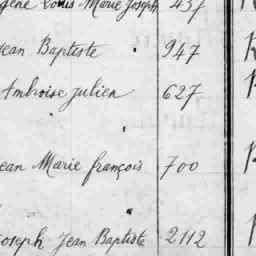 gène Louis Marie Joseph 437
Jean Baptiste 947
Ambroise Julien 627
Jean Marie françois 700
Joseph Jean Baptiste 2112